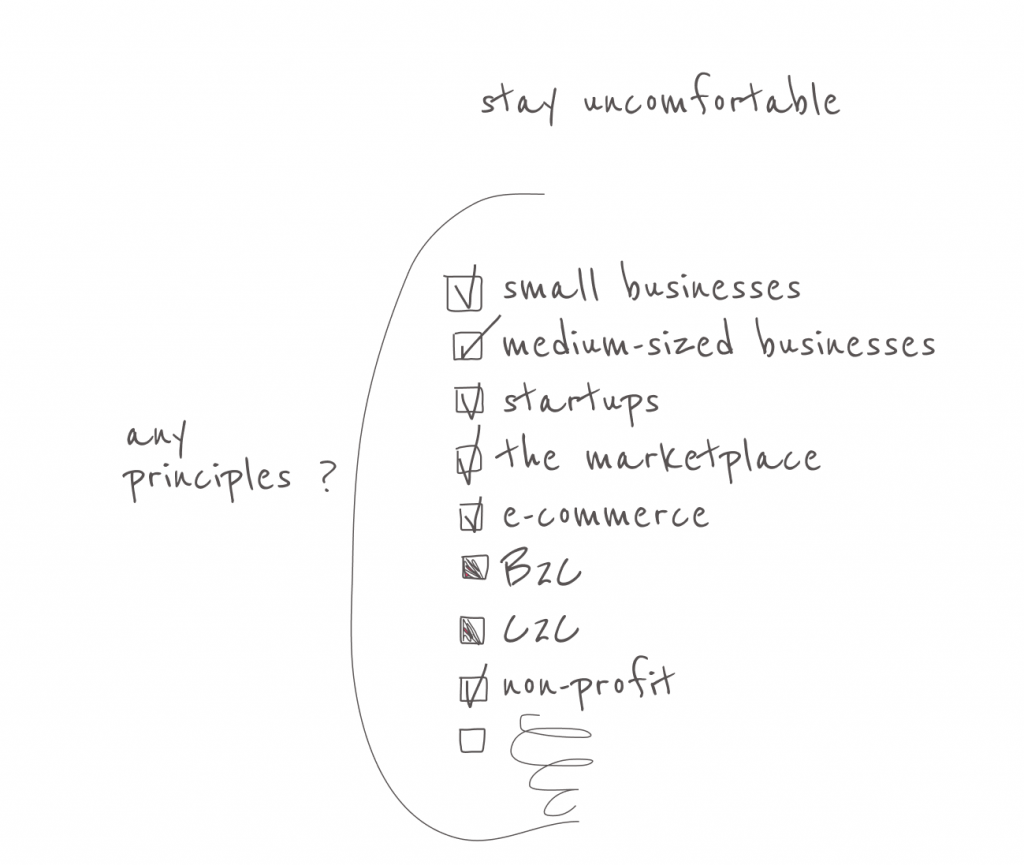 stay uncomfortable
any
principles ?
small businesses
medium-sized businesses
startups
the marketplace
e-commerce
B2C
C2C
non-profit